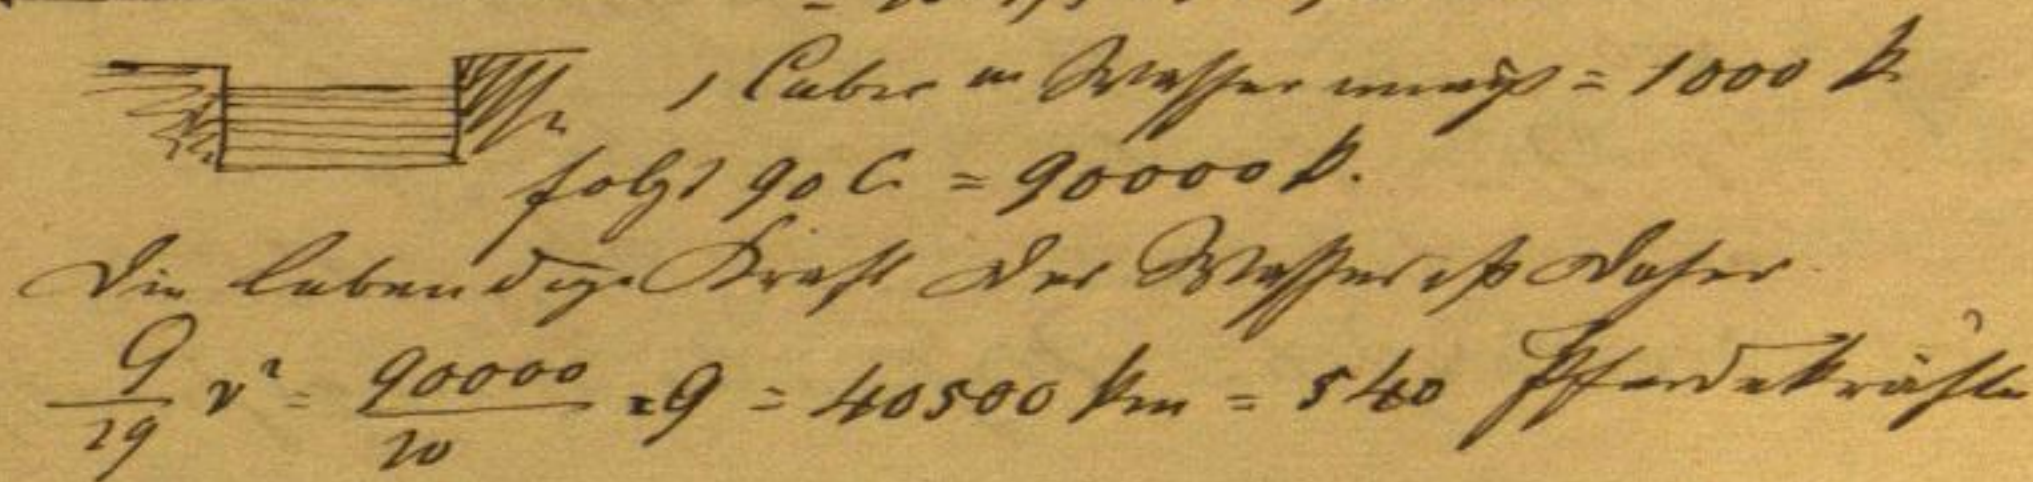 1 Cubic m Wasser wiegt = 1000 k
folgt 90 C. = 90000 k.
Die lebendige Kraft des Wassers ist daher
G/2g v² = 90000/20 · 9 = 40500 km = 540 Pferdekräfte